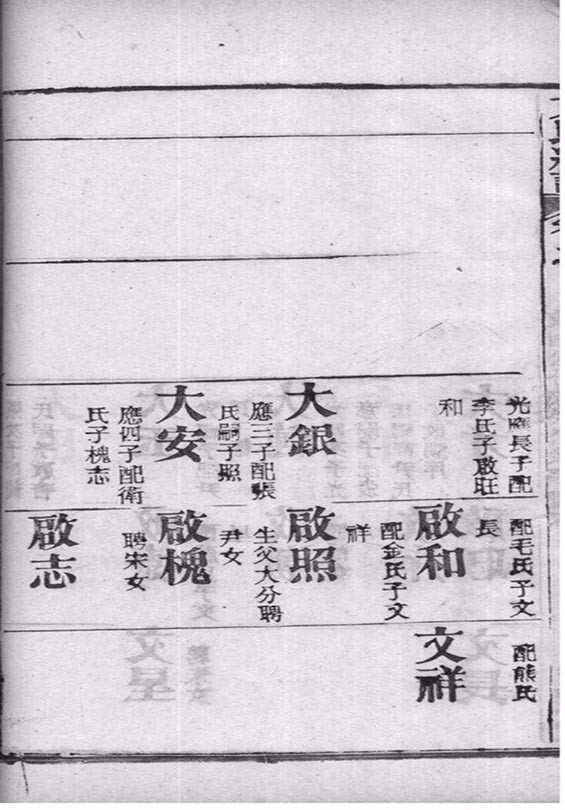 光應長子配
李氏子啟旺
和
大銀
應三子配張
氏嗣子照
大安
應四子配衛
氏子槐志
配毛氏子文
長
啟和
配金氏子文
祥
啟照
生父大分聘
尹女
啟槐
聘宋女
啟志
配熊氏
文祥